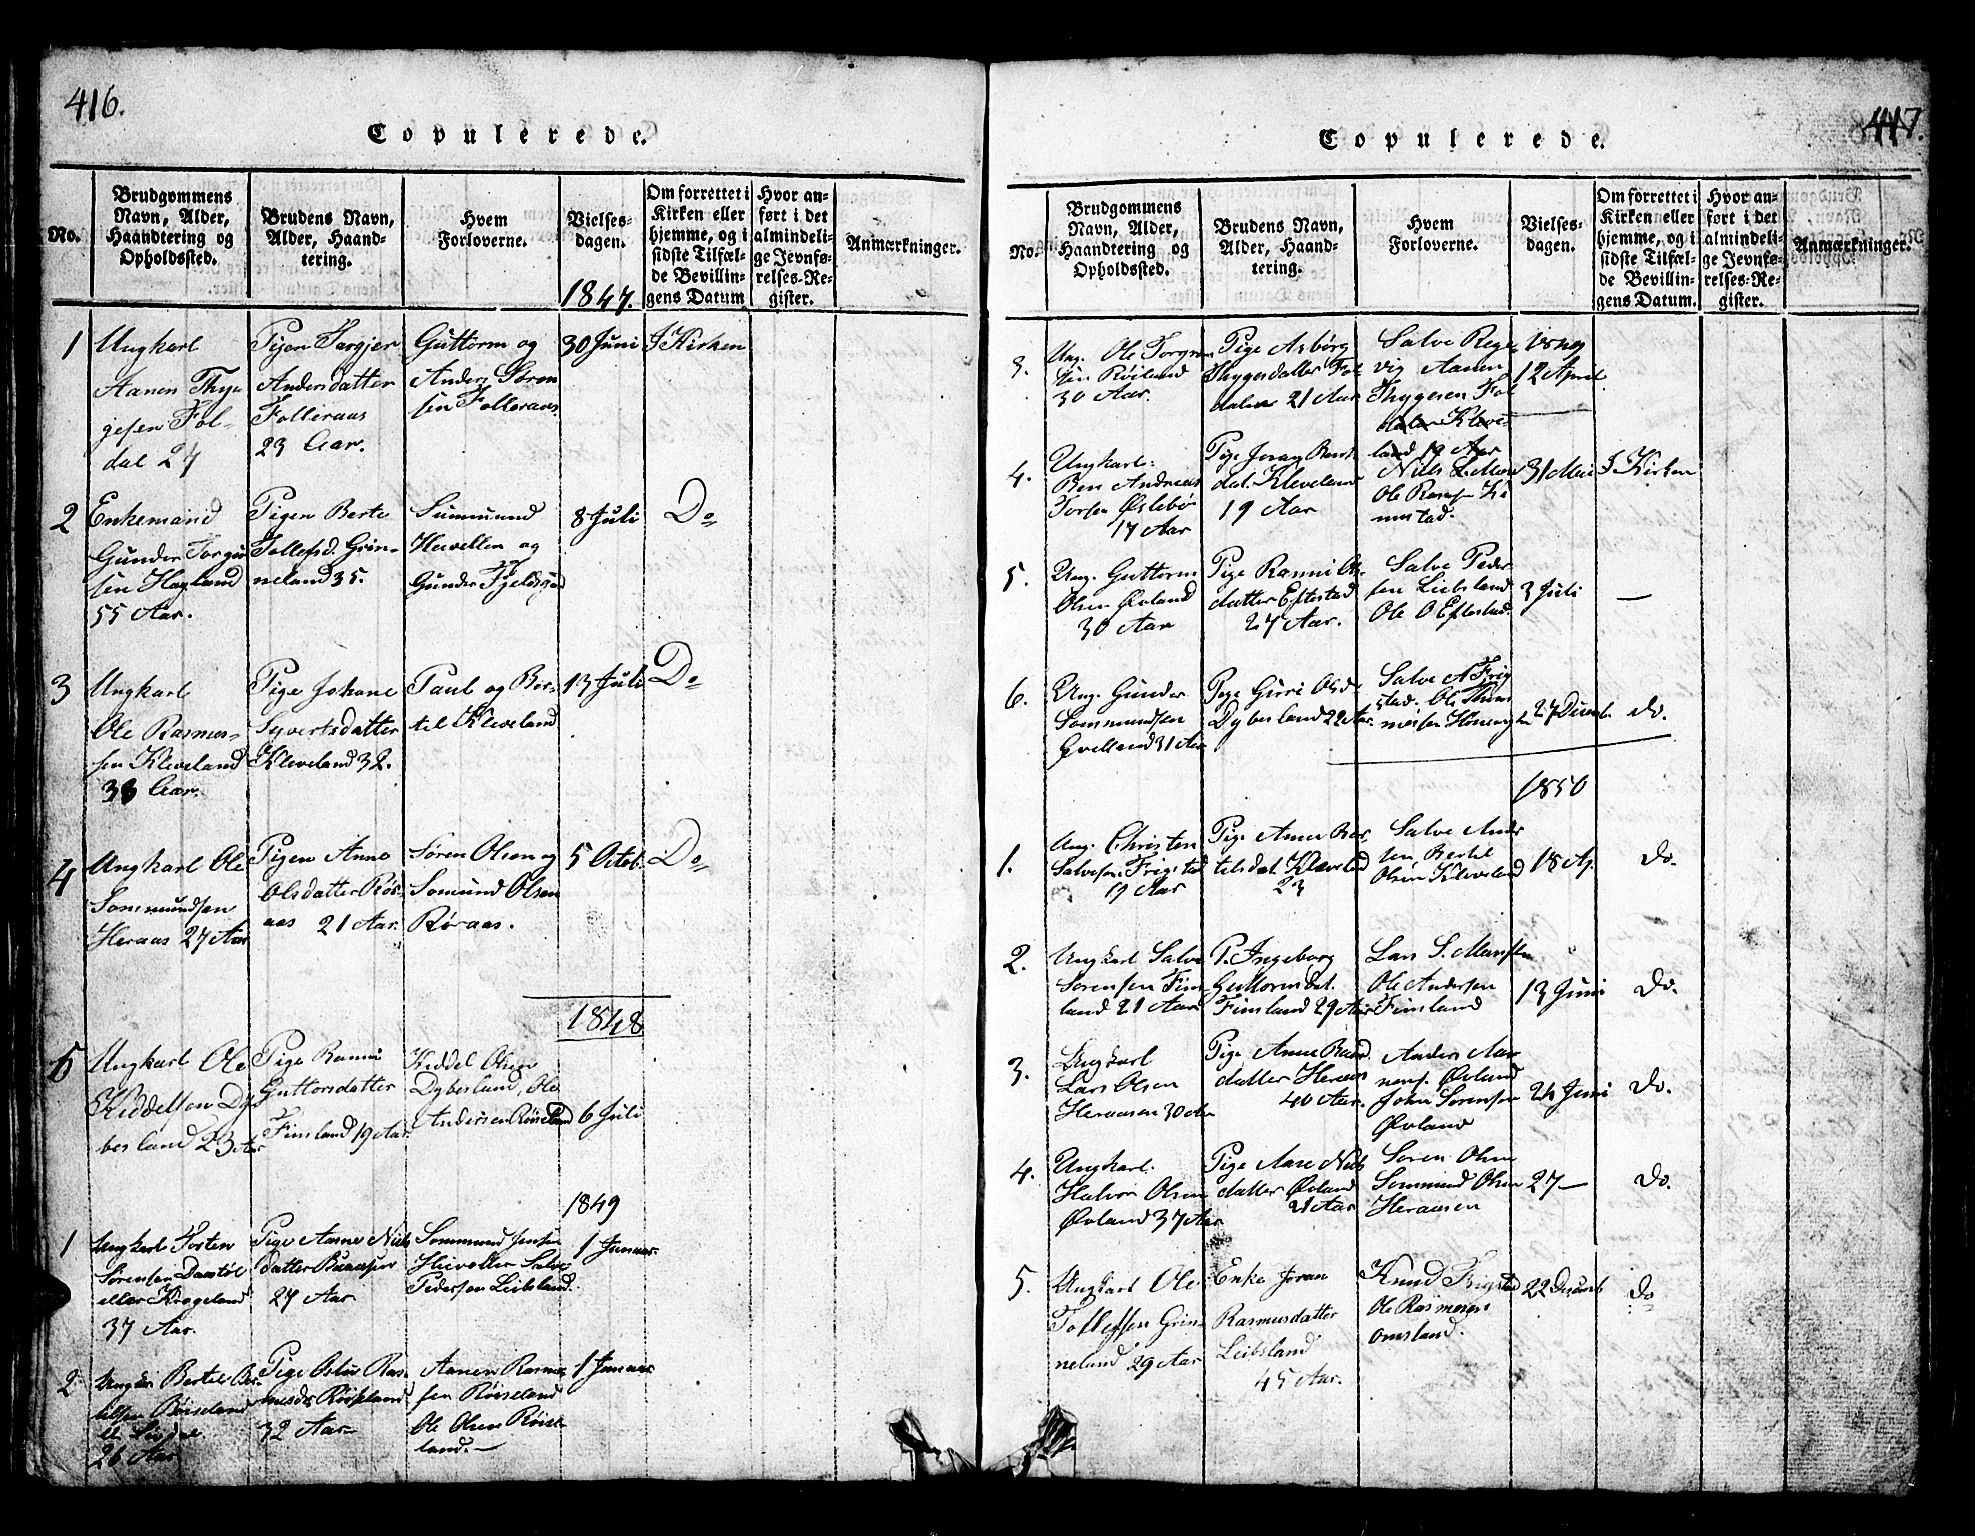 416.
Copulerede.
No.
Brudgommens
Navn, Alder,
Haandtering og
Opholdssted.
Brudens Navn,
Alder, Haand-
tering.
Hvem
Forloverne.
Vielses-
dagen.
1847.
Om forrettet i
Kirken eller
hjemme, og i
sidste Tilfæl-
de Bevillin-
gens Datum
Hvor an-
ført i det
almindeli-
ge Jevnfø-
relses-Re-
gister.
Anmærkninger.
1
Ungkarl
Aanen Thy-
gesen Fol-
dal 24
Pigen Targjer
Andersdatter
Folleraas
23 Aar.
Guttorm og
Anders Søren
sen Folleraas
30 Juni
I Kirken
2
Enkemand
Gunder Torgju
sen Hagland
55 Aar.
Pigen Berte
Tollefsd. Grin-
neland 35.
Summund
og
Gunder
8 Juli
Do
3
Ungkarl
Ole Rasmus-
sen Kleveland
38 Aar.
Pige Johane
Syvertsdatter
Kleveland 32.
Paul og Ber-
til Kleveland
13 Juli
Do
4
Ungkarl Ole
Sommundsen
Heraas 27 Aar
Pigen Anne
Olsdatter Rør-
aas 21 Aar.
Søren Olsen og
Somund Olsen
Røraas.
5 Octob.
Do
1848
5
Ungkarl Ole
Kiddelsen Dy-
besland 23 Aar
Pige Ranni
Guttorsdatter
Finsland 19 Aar.
Kiddel Olsen
Dybesland, Ole
Andersen Røiseland
6 Juli
1849
1
Ungkarl Torsten
Sørensen
eller Krogeland
37 Aar.
Pige Aasne Niels
datter
27 Aar
Sommund Jensen
Salve
Pedersen Leibsland
1 Januar
2
Ungkar Bertel Ber
telsen Røiseland
26 Aar
Pige Aslau Ras-
musdr Røiseland
32 Aar
Aanen Rasmus
sen Røiseland
Ole Olsen Røise
land.
1 Januar
417.
Copulerede.
No.
Brudgommens
Navn, Alder,
Haandtering og
Opholdssted.
Brudens Navn,
Alder, Haand-
tering.
Hvem
Forloverne.
Vielses-
dagen.
Om forrettet i
Kirken eller
hjemme, og i
sidste Tilfæl-
de Bevillin-
gens Datum.
Hvor an-
ført i det
almindeli-
ge Jevnfø-
relses-Re-
gister.
Anmærkninger.
3.
Ung. Ole Torgrim
sen Røiland
30 Aar.
Pige Asbørg
Thygesdatter Fol
dalen 21 Aar
Salve Rege
vig Aanen
Thygesen Fol
dalen Kleve-
land 19 Aar
1849
12 April
4.
Ungkarl:
Ben Andreas
Torsen Øslebø
17 Aar
Pige Joran Bent
dat. Kleveland
19 Aar
Niels
Ole
31 Mai
I Kirken
5.
Ung. Guttorm
Olsen Øvland
30 Aar
Pige Ranni Ols
datter Eftestad
27 Aar.
Salve Peder
sen Leibsland
Ole O Eftestad.
3 Juli
—
6.
Ung. Gunder
Sommundsen
31 Aar
Pige Gurri Olsd.
Dybesland 22 Aar.
Salve A Frig
stad. Ole
27 Decemb
do.
1850
1.
Ung. Christen
Salvesen Frigstad
19 Aar
Pige Anne Ber
telsdat. Kleveland
23
Salve Ander
sen Bertel
Olsen Kleveland
18 Ap.
do.
2.
Ungkarl Salve
Sørensen Fins-
land 21 Aar
P. Ingeborg
Guttormsdat.
Finsland 29 Aar
Lars S.
Ole Andersen
Finsland
13 Juni
do.
3.
Ungkarl
Lars Olsen
Heraasen 30 Aar
Pige Anne
datter Heraas
40 Aar.
Anders Aa-
nens. Øvland
John Sørensen
Øvland
24 Juni
do.
4.
Ungkarl.
Halvor Olsen
Øvland 37 Aar
Pige Aase Niels
datter Øvland
21 Aar
Søren Olsen
Sommund Olsen
Heraasen
27 —
do.
5.
Ungkarl Ole
Tollefsen Grin-
neland 29 Aar
Enke Joran
Rasmusdatter
Leibsland
45 Aar.
Knud Frigstad
Ole Rasmusen
omsland.
22 Decemb
do